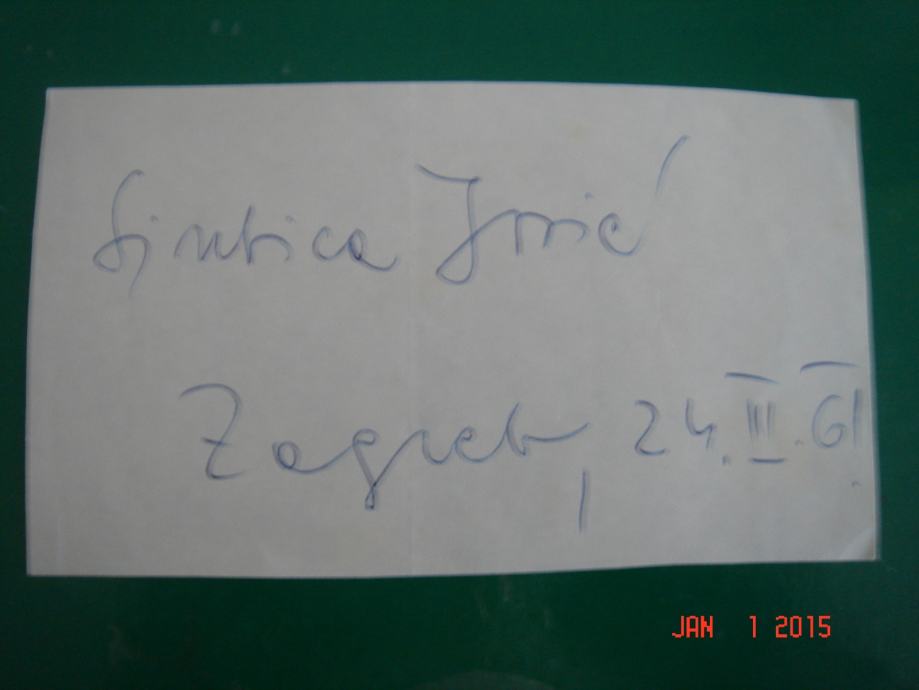 Ljubica Jović
Zagreb, 24. III. 61.
JAN 1 2015